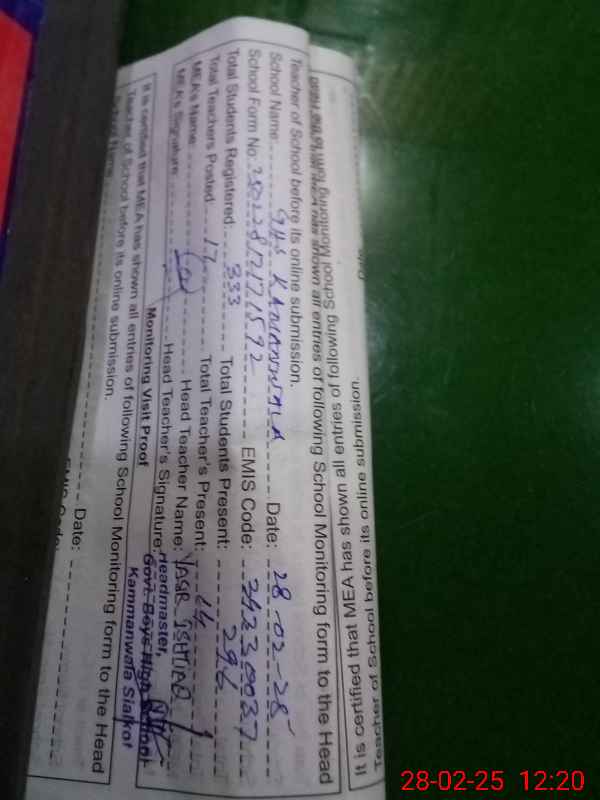 It is certified that MEA has shown all entries of
Teacher of School before its online submission.
following School Monitoring form to the Head
Teacher of School before its online submission.
School Name: GHS KAMANWALA Date: 28-02-25
School Form No. EMIS Code: 34230037
Total Students Registered: 333 Total Students Present: 296
Total Teachers Posted: 17 Total Teacher's Present: 14
MEA's Name: Head Teacher Name: YASIR ISHTIAQ
MEA's Signature: Head Teacher's Signature:
Headmaster,
Govt. Boys High School
Kammanwala Sialkot
Monitoring Visit Proof
It is certified that MEA has shown all entries of following School Monitoring form to the Head
Teacher of School before its online submission.
Date:
28-02-25 12:20